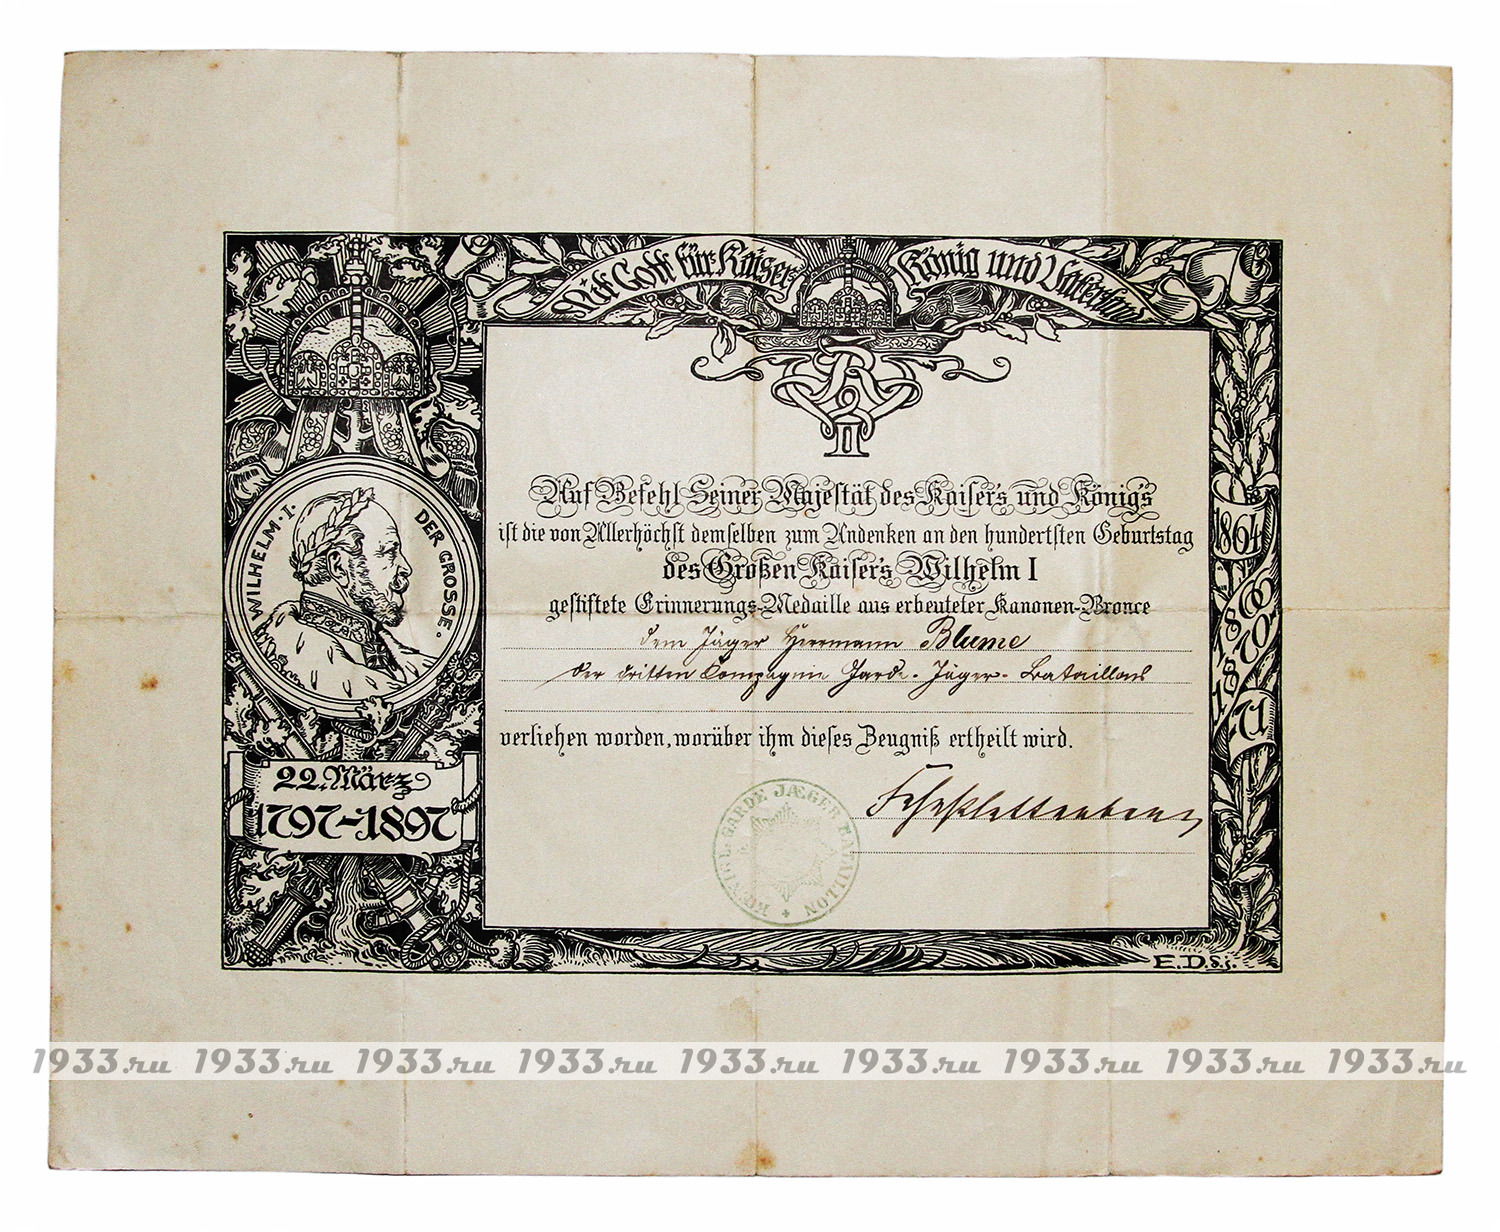 Mit Gott für Kaiser König und Vaterland
WILHELM · I · DER GROSSE.
22. März
1797–1897
W R
II
Auf Befehl Seiner Majestät des Kaisers und Königs
ist die von Allerhöchst demselben zum Andenken an den hundertsten Geburtstag
des Großen Kaisers Wilhelm I
gestiftete Erinnerungs-Medaille aus erbeuteter Kanonen-Bronce
dem Jäger Herrmann Blume
der dritten Compagnie Garde-Jäger-Bataillons
verliehen worden, worüber ihm dieses Zeugniß ertheilt wird.
KŒNIGL. GARDE JÆGER BATAILLON
1864
1866
1870
71
E.D.d.j.
1933.ru 1933.ru 1933.ru 1933.ru 1933.ru 1933.ru 1933.ru 1933.ru 1933.ru